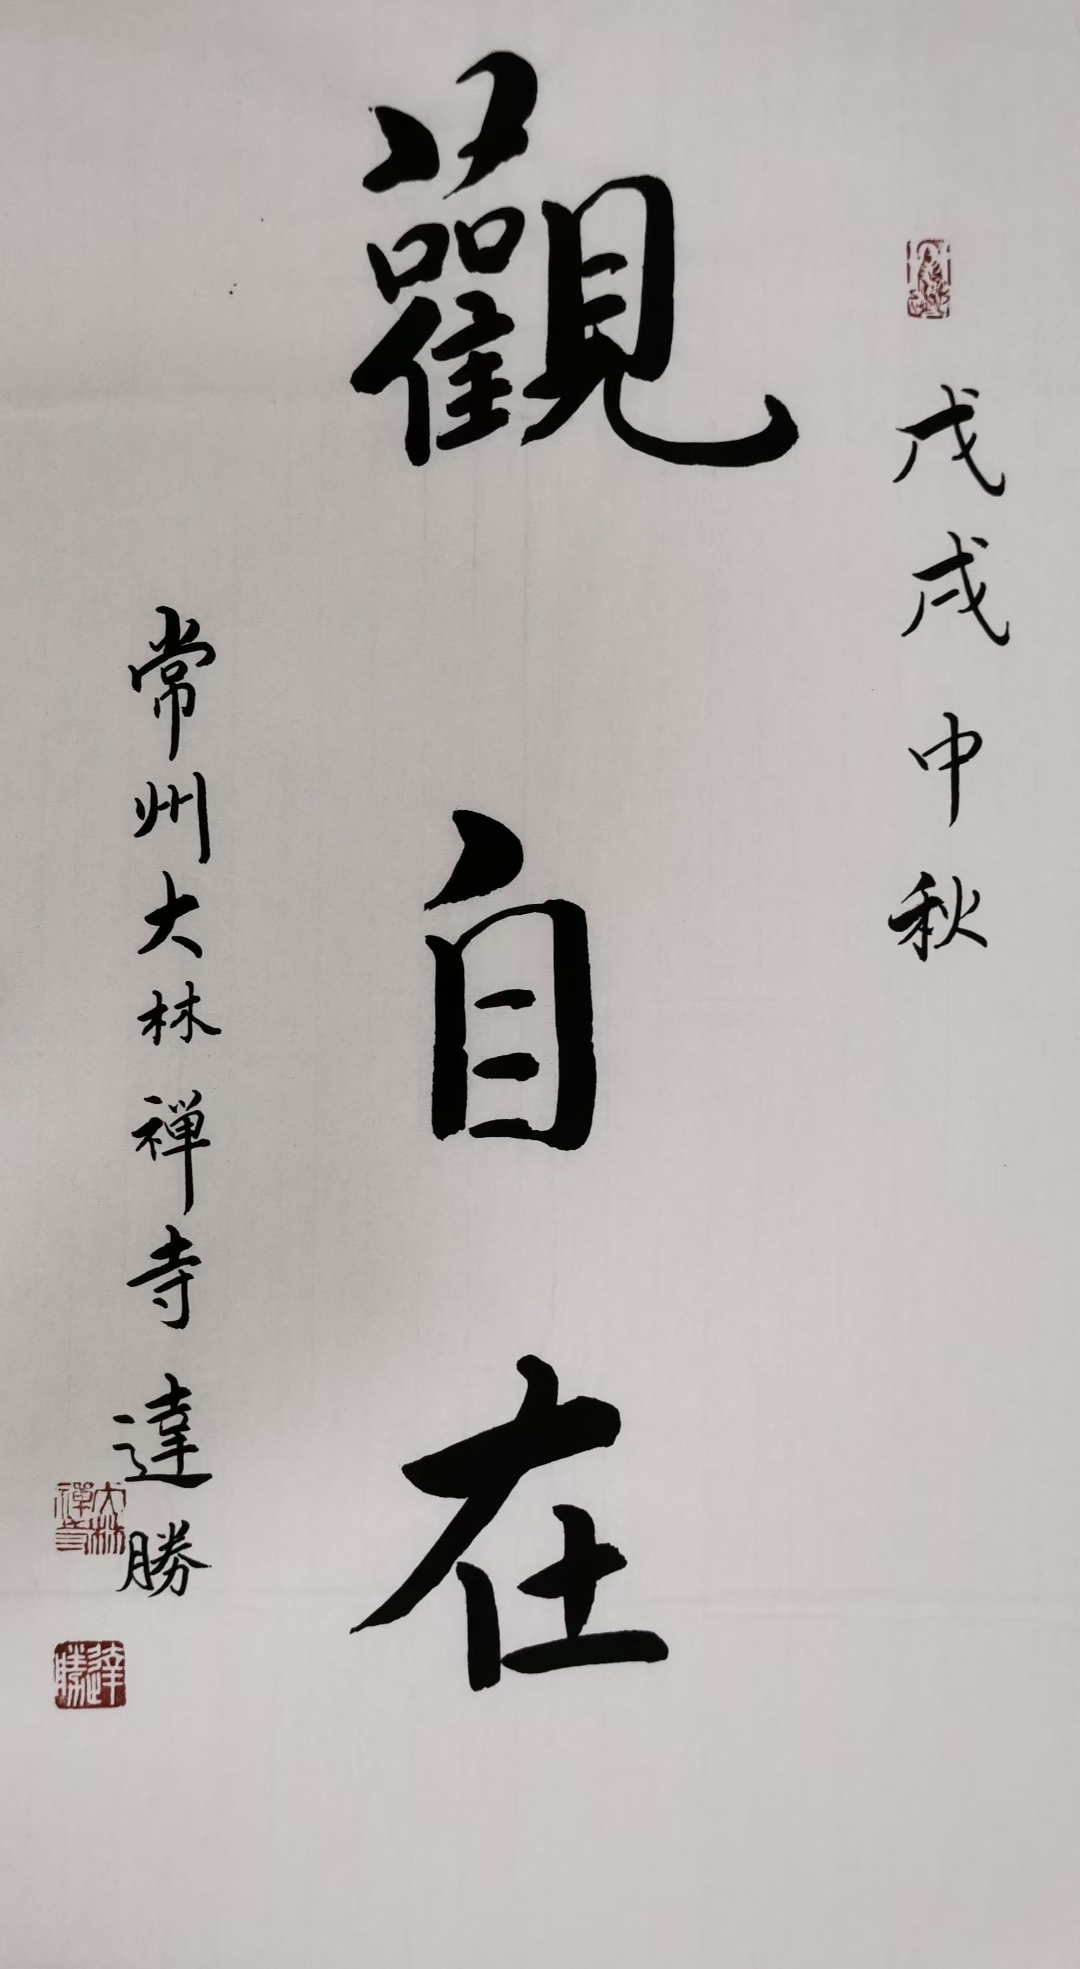 戊戌中秋
觀自在
常州大林禅寺達勝
大林禪寺
達勝